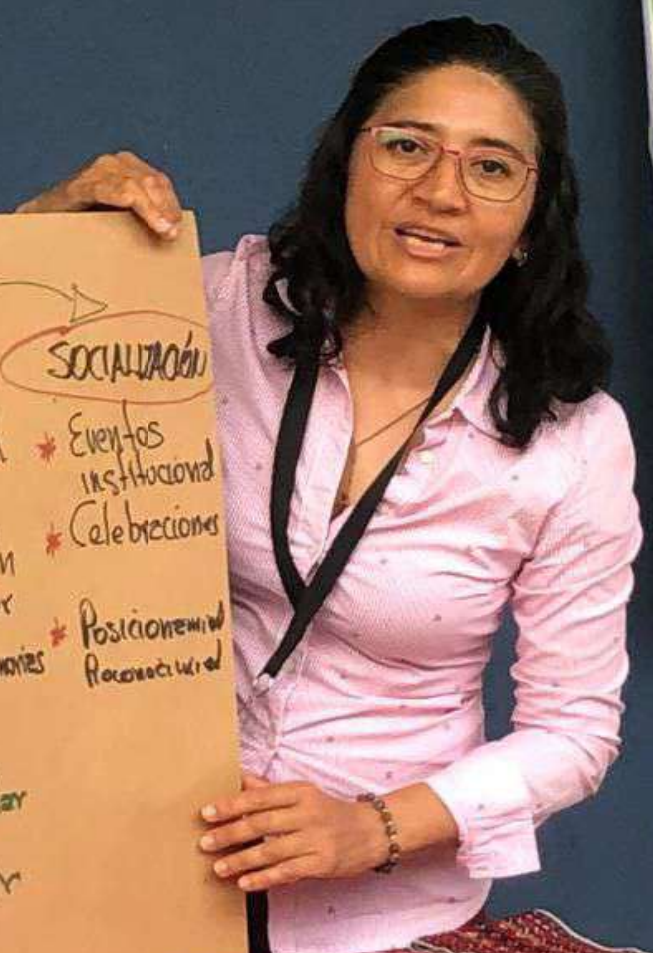 SOCIALIZACIÓN
* Eventos
institucional
* Celebraciones
n
r
* Posicionamient
Reconocimient
ar
r